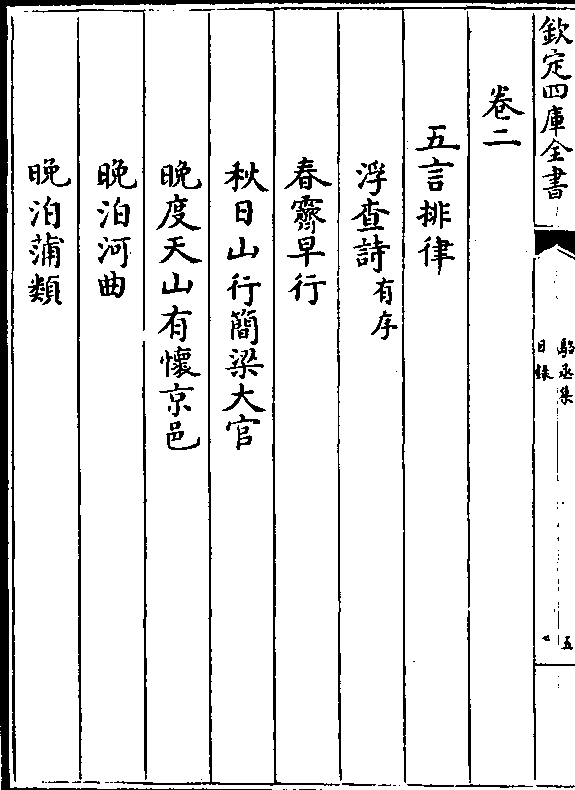 欽定四庫全書
駱丞集
目錄
五
卷二
五言排律
浮查詩有序
春霽早行
秋日山行簡梁大官
晚度天山有懷京邑
晚泊河曲
晚泊蒲類